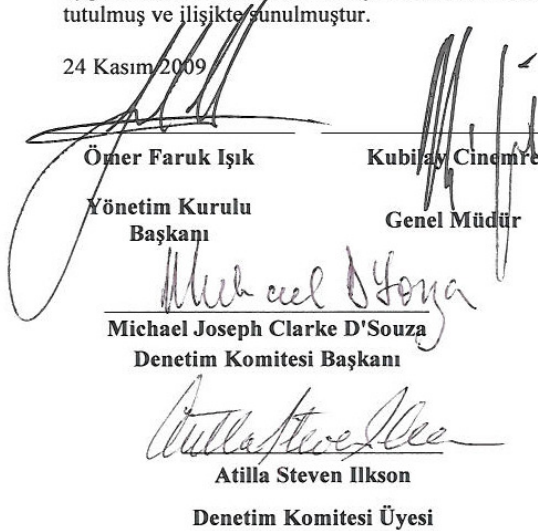 tutulmuş ve ilişikte sunulmuştur.
24 Kasım 2009
Ömer Faruk Işık Kubilay Cinemre
Yönetim Kurulu Genel Müdür
Başkanı
Michael D'Souza
Michael Joseph Clarke D'Souza
Denetim Komitesi Başkanı
Atilla Steven Ilkson
Denetim Komitesi Üyesi